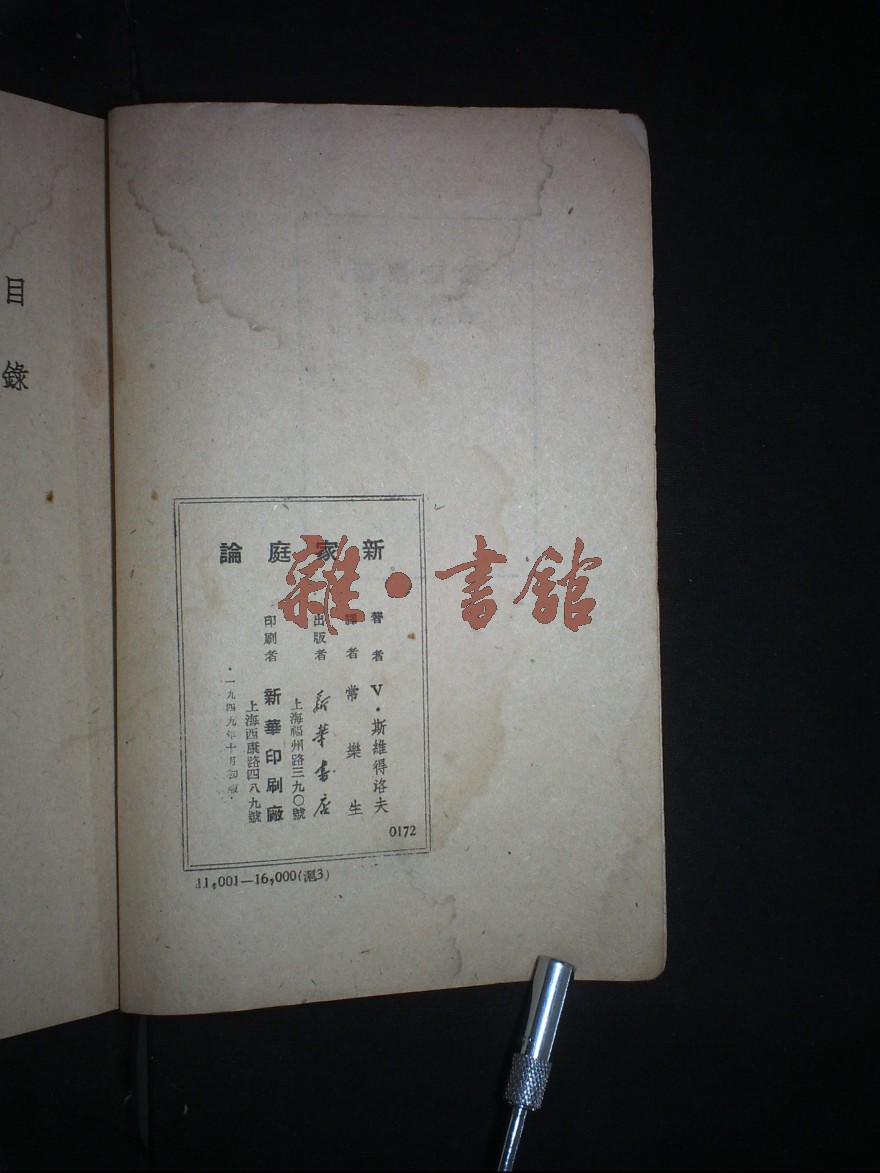 目錄
新家庭論
著者 V·斯維得洛夫
譯者 常樂生
出版者 新華書店
上海福州路三九〇號
印刷者 新華印刷廠
上海西康路四八九號
·一九四九年十月初版·
0172
11,001—16,000(滬3)
雜·書館